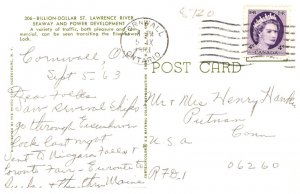 306-BILLION-DOLLAR ST. LAWRENCE RIVER
SEAWAY AND POWER DEVELOPMENT
A variety of traffic, both pleasure and com-
mercial, can be seen transiting the Eisenhower
Lock.
CORNWALL
ONTARIO
CANADA
POST CARD
Cornwall, Ont
Sept 5. 63
Dear Folks
Saw several ships
go through Eisenhower
Lock last night
Went to Niagara Falls &
Toronto Fair - Enroute to
& thru Maine
Mr & Mrs Henry
Putnam
Conn
U S A
R F D 1 06260